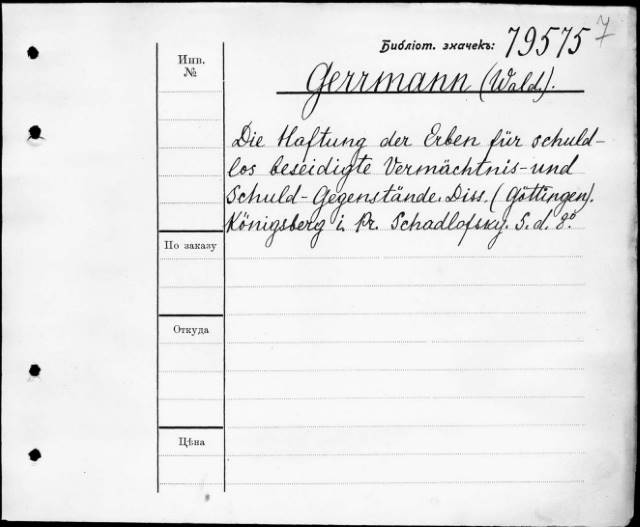 Библіот. значекъ: 79575
7
Инв.
№
Gerrmann (Wald.).
Die Haftung der Erben für schuld-
los beseidigte Vermächtnis- und
Schuld-Gegenstände. Diss. (Göttingen).
Königsberg i. Pr. Schadlofsky. S. d. 8º
По заказу
Откуда
Цѣна